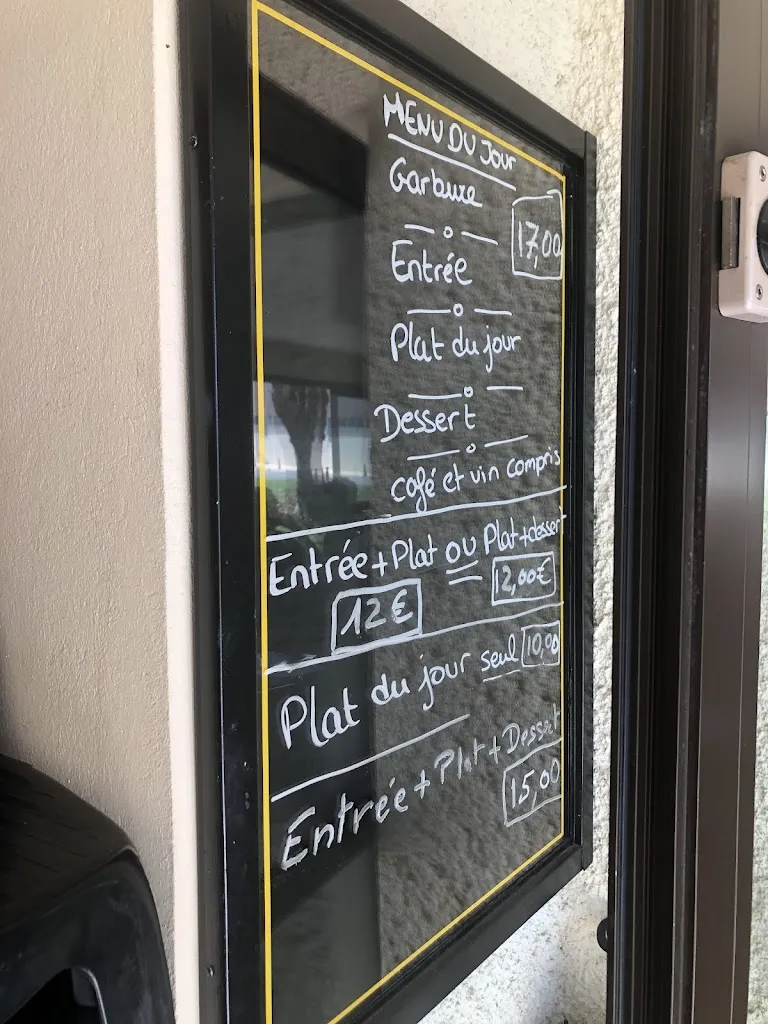 MENU DU JOUR
Garbure
17,00
Entrée
Plat du jour
Dessert
café et vin compris
Entrée+Plat OU Plat+dessert
12€ 12,00€
Plat du jour seul 10,00
Entrée+Plat+Dessert
15,00